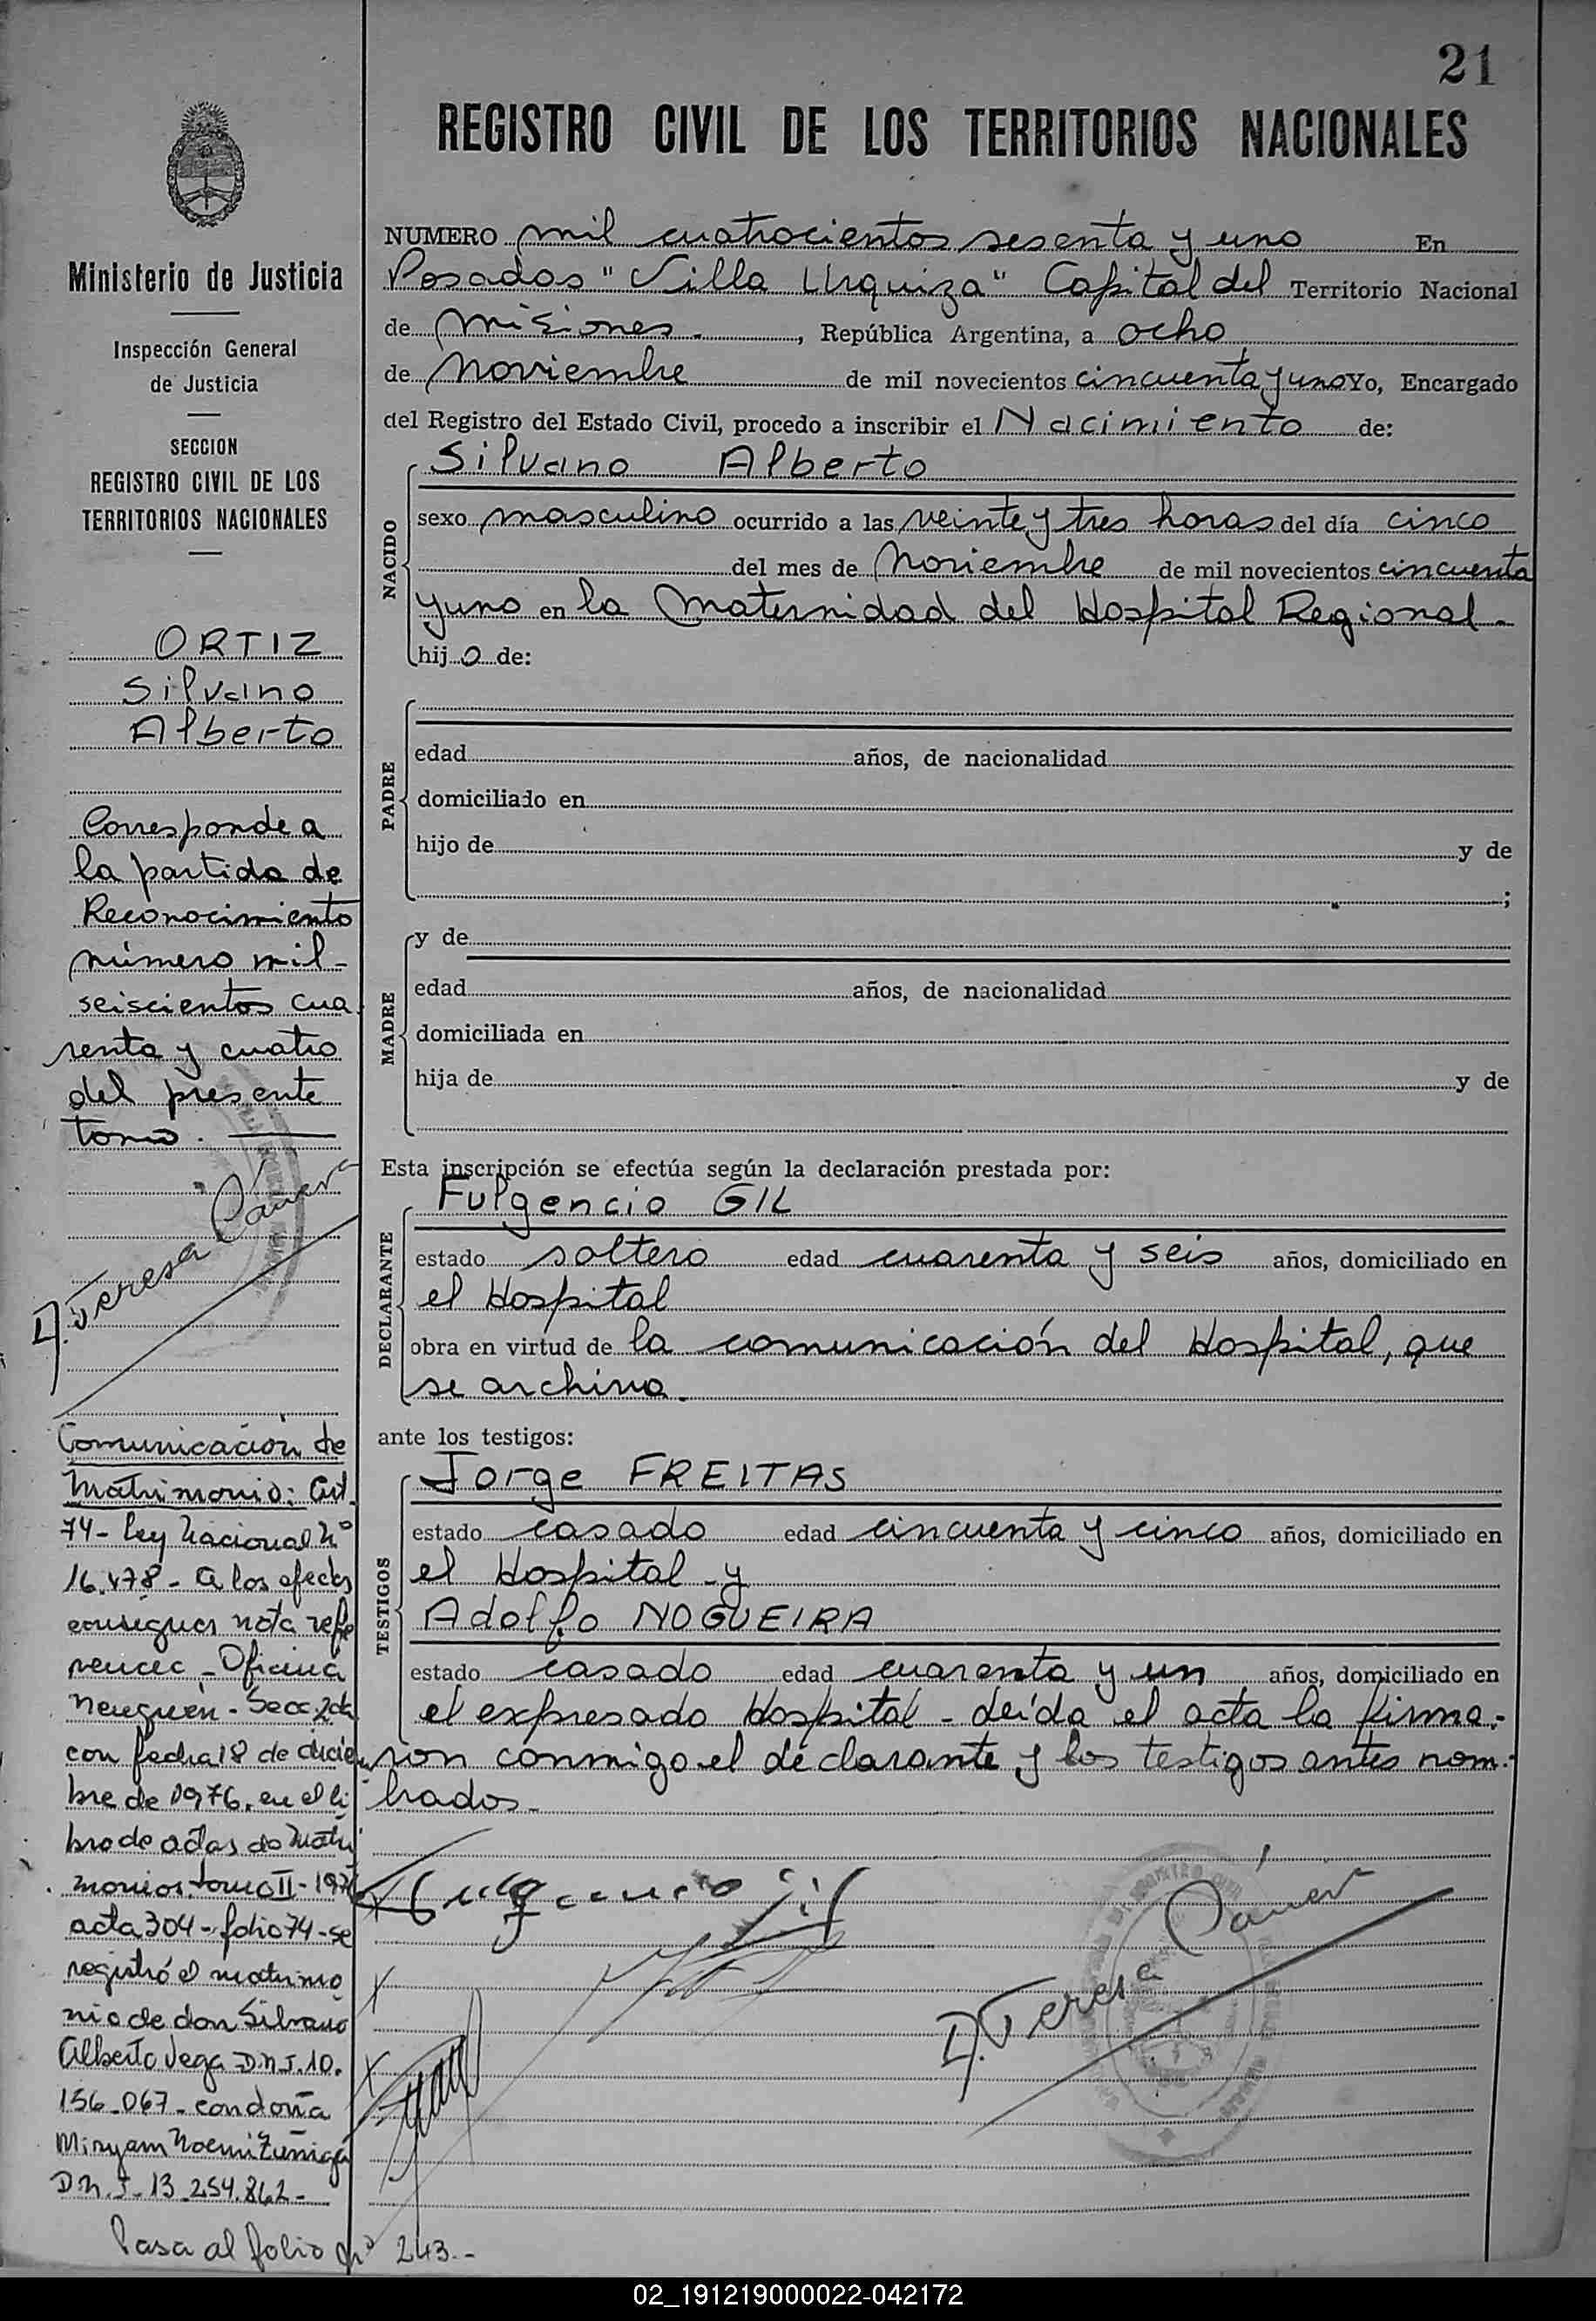 21
REGISTRO CIVIL DE LOS TERRITORIOS NACIONALES
Ministerio de Justicia
Inspección General
de Justicia
SECCION
REGISTRO CIVIL DE LOS
TERRITORIOS NACIONALES
ORTIZ
Silvano
Alberto
Corresponde a
la partida de
Reconocimiento
número mil-
seiscientos cua
renta y cuatro
del presente
tomo.
Comunicación de
Matrimonio: Art.
74- Ley Nacional Nº
16.478- A los efectos
nota refe
rencec - Oficina
Neuquén - Secc 2da
con fecha 18 de diciem
bre de 1976, en el li
bro de actas de Matri
monios, tomo II - 1976
acta 304 - folio 74 - se
registró el matrimo
nio de don Silvano
Alberto Vega D.N.I. 10.
156.067 - con doña
Miryam Noemi Zuñiga
D.N.I. 13.254.862-
Pasa al folio Nº 243.-
NUMERO mil cuatrocientos sesenta y uno En
Posadas "Villa Urquiza" Capital del Territorio Nacional
de Misiones.-, República Argentina, a ocho
de Noviembre de mil novecientos cincuenta y uno Yo, Encargado
del Registro del Estado Civil, procedo a inscribir el Nacimiento de:
NACIDO
Silvano Alberto
sexo masculino ocurrido a las veinte y tres horas del día cinco
del mes de Noviembre de mil novecientos cincuenta
y uno en la Maternidad del Hospital Regional.-
hijo de:
PADRE
edad años, de nacionalidad
domiciliado en
hijo de y de
;
MADRE
y de
edad años, de nacionalidad
domiciliada en
hija de y de
Esta inscripción se efectúa según la declaración prestada por:
DECLARANTE
Fulgencio GIL
estado soltero edad cuarenta y seis años, domiciliado en
el Hospital
obra en virtud de la comunicación del Hospital, que
se archiva.
ante los testigos:
TESTIGOS
Jorge FREITAS
estado casado edad cincuenta y cinco años, domiciliado en
el Hospital - y
Adolfo NOGUEIRA
estado casado edad cuarenta y un años, domiciliado en
el expresado Hospital - Leída el acta la firma-
ron conmigo el declarante y los testigos antes nom-
brados.-
Fulgencio Gil
02_191219000022-042172